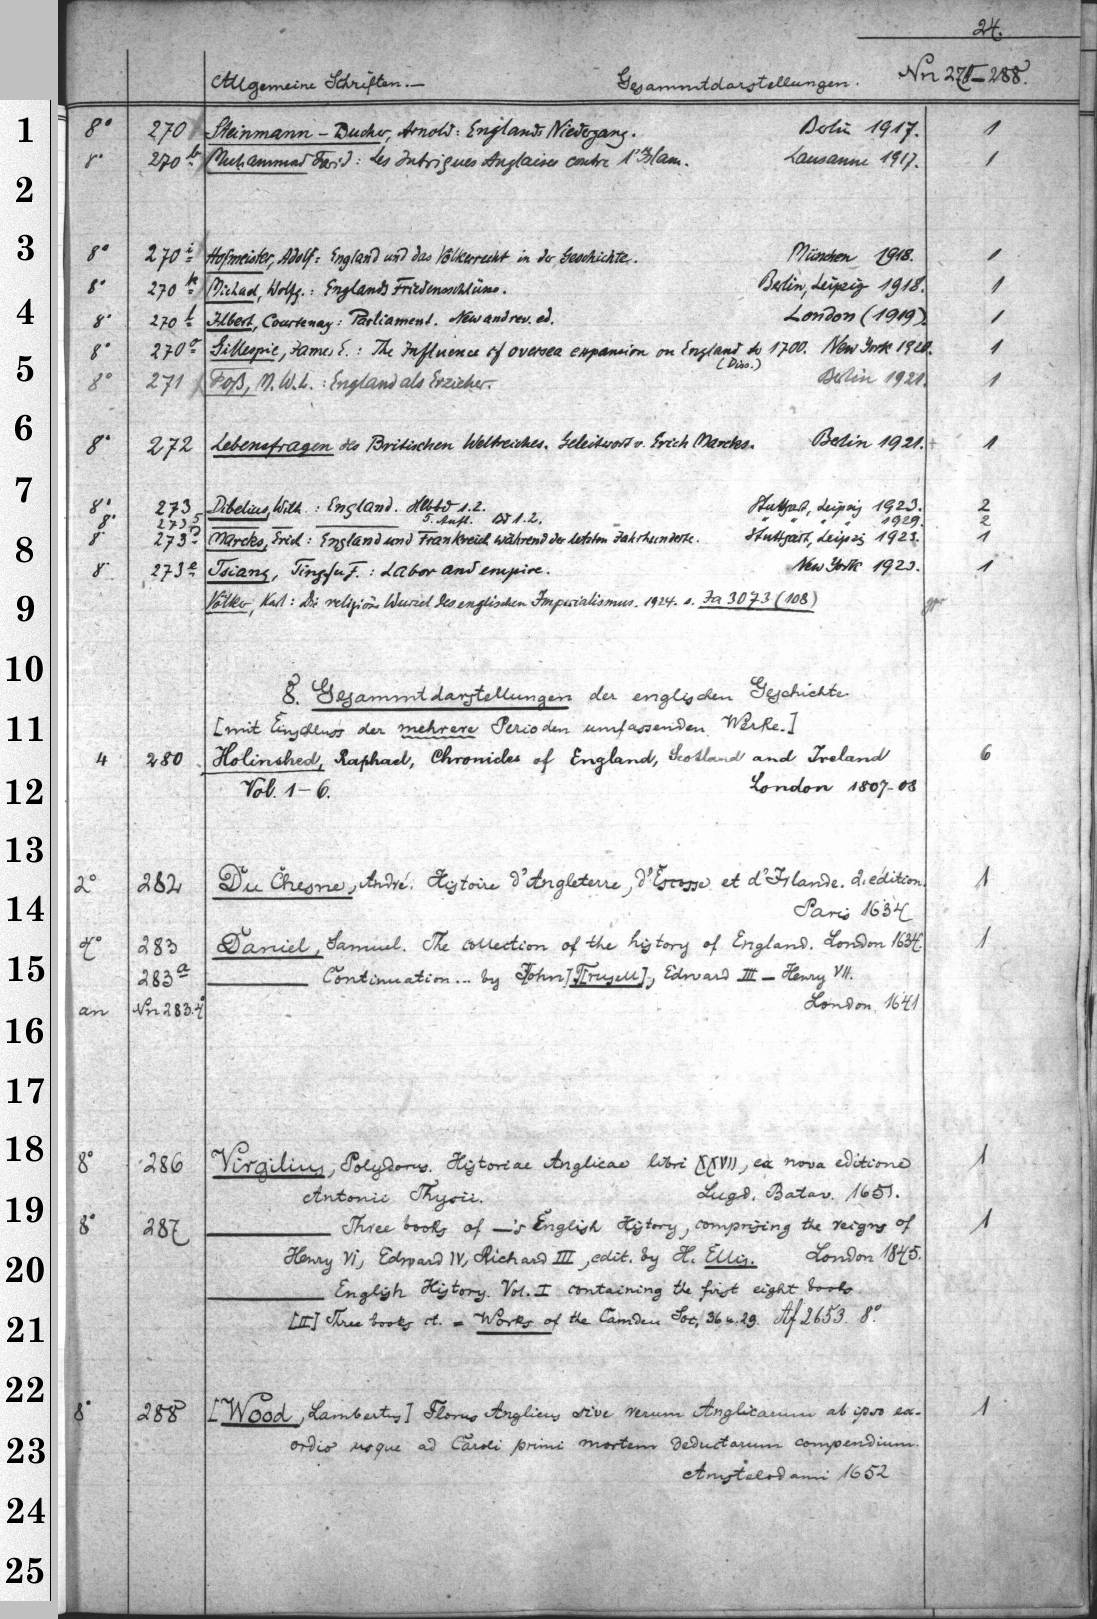 24.
Allgemeine Schriften.— Gesammtdarstellungen. Nn 270—288.
1
8° 270 Steinmann-Bucher, Arnold: Englands Niedergang. Berlin 1917. 1
8° 270 h Muhammad Farid: Les Intrigues Anglaises contre l'Islam. Lausanne 1917. 1
2
3
8° 270 i Hofmeister, Adolf: England und das Völkerrecht in der Geschichte. München 1918. 1
8° 270 k Michael, Wolfg.: Englands Friedensschlüsse. Berlin, Leipzig 1918. 1
4
8° 270 l Ilbert, Courtenay: Parliament. New and rev. ed. London (1919). 1
8° 270 o Gillespie, James E.: The Influence of oversea expansion on England to 1700. New York 1920. 1
(Diss.)
5
8° 271 Foß, M. W. L.: England als Erzieher. Berlin 1921. 1
6
8° 272 Lebensfragen des Britischen Weltreiches. Geleitwort v. Erich Marcks. Berlin 1921. 1
7
8° 273 Dibelius, Wilh.: England. Hlbbd 1.2. Stuttgart, Leipzig 1923. 2
8° 273 5 5. Aufl. Bd 1.2. " " " 1929. 2
8
8° 273 a Marcks, Erich: England und Frankreich während der letzten Jahrhunderte. Stuttgart, Leipzig 1923. 1
8° 273 e Tsiang, Tingfu F.: Labor and empire. New York 1923. 1
9
Völker, Karl: Die religiöse Wurzel des englischen Imperialismus. 1924. s. Ja 3073 (108)
10
8. Gesammtdarstellungen der englischen Geschichte
11
[mit Einschluss der mehrere Perioden umfassenden Werke.]
4 280 Holinshed, Raphael, Chronicles of England, Scotland and Ireland 6
12
Vol. 1-6. London 1807-08
13
2° 282 Du Chesne, André. Histoire d'Angleterre, d'Escosse et d'Irlande. 2. édition. 1
14
Paris 1634
4° 283 Daniel, Samuel. The collection of the history of England. London 1634. 1
15
283 a —— Continuation... by J[ohn] T[rusell], Edward III — Henry VII.
an Nn 283.4° London 1641
16
17
18
8° 286 Virgilius, Polydorus. Historiae Anglicae libri XXVII, ex nova editione 1
Antonii Thysii. Lugd. Batav. 1651.
19
8° 287 —— Three books of —'s English History, comprising the reigns of 1
20
Henry VI, Edward IV, Richard III, edit. by H. Ellis. London 1845.
—— English History. Vol. I containing the first eight books
21
[II] Three books ct. = Works of the Camden Soc. 36 u. 29. Af 2653. 8°.
22
8° 288 [Wood, Lambertus] Florus Anglicus sive rerum Anglicarum ab ipso ex- 1
23
ordio usque ad Caroli primi mortem deductarum compendium.
Amstelodami 1652
24
25